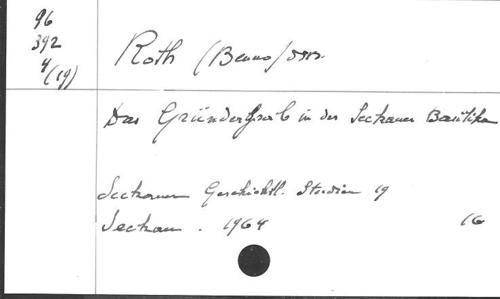 96
392
4(19)
Roth (Benno) OSB.
Das Gründergrab in der Seckauer Basilika
Seckauer Geschichtl. Studien 19
Seckau . 1964 16